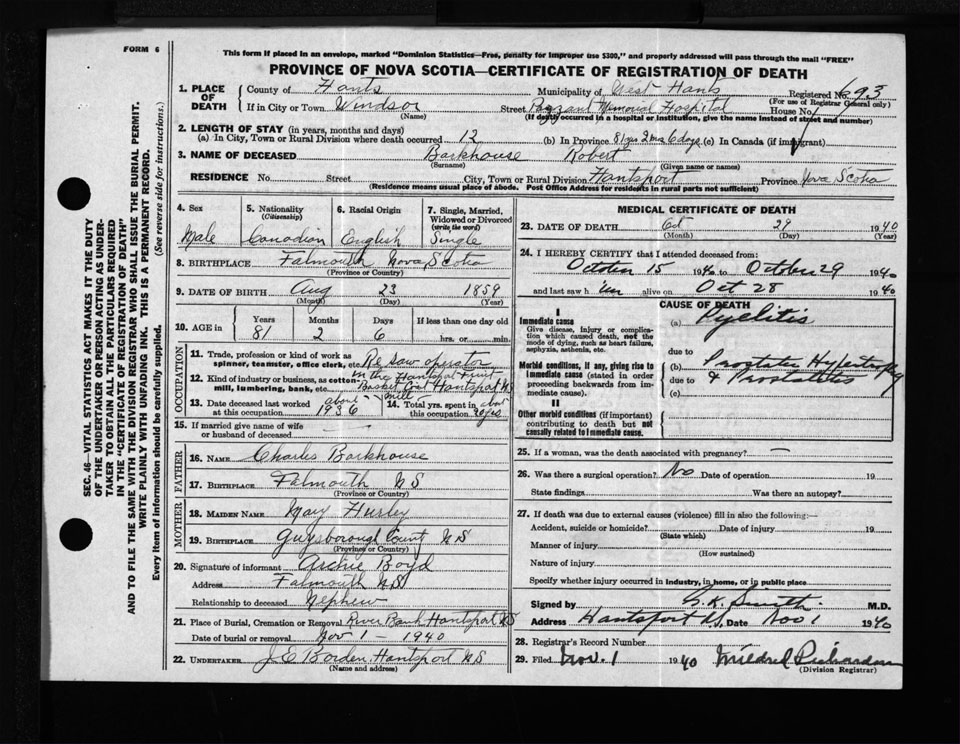 FORM 6
This form if placed in an envelope, marked "Dominion Statistics—Free, penalty for improper use $300," and properly addressed will pass through the mail "FREE"
PROVINCE OF NOVA SCOTIA—CERTIFICATE OF REGISTRATION OF DEATH
1. PLACE OF DEATH County of Hants Municipality of West Hants Registered No. 693
(For use of Registrar General only)
If in City or Town Windsor Street Payzant Memorial Hospital House No.
(Name) (If death occurred in a hospital or institution, give the name instead of street and number)
2. LENGTH OF STAY (in years, months and days)
(a) In City, Town or Rural Division where death occurred 12 (b) In Province 81 yrs 2 ms 6 days (c) In Canada (if immigrant)
3. NAME OF DECEASED Barkhouse Robert
(Surname) (Given name or names)
RESIDENCE No. Street City, Town or Rural Division Hantsport Province Nova Scotia
(Residence means usual place of abode. Post Office Address for residents in rural parts not sufficient)
4. Sex 5. Nationality (Citizenship) 6. Racial Origin 7. Single, Married, Widowed or Divorced (write the word)
Male Canadian English Single
8. BIRTHPLACE Falmouth Nova Scotia
(Province or Country)
9. DATE OF BIRTH Aug 23 1859
(Month) (Day) (Year)
10. AGE in Years Months Days If less than one day old
81 2 6 hrs. or min.
OCCUPATION
11. Trade, profession or kind of work as spinner, teamster, office clerk, etc. Re saw operator
12. Kind of industry or business, as cotton mill, lumbering, bank, etc. in the Hantsport Fruit Basket Co Hantsport NS
mill
13. Date deceased last worked at this occupation about 1936 14. Total yrs. spent in this occupation about
15. If married give name of wife or husband of deceased
FATHER
16. NAME Charles Barkhouse
17. BIRTHPLACE Falmouth NS
(Province or Country)
MOTHER
18. MAIDEN NAME Mary Hurley
19. BIRTHPLACE Guysborough Count NS
(Province or Country)
20. Signature of informant Archie Boyd
Address Falmouth NS
Relationship to deceased Nephew
21. Place of Burial, Cremation or Removal River Bank Hantsport NS
Date of burial or removal Nov 1 - 1940
22. UNDERTAKER J E Borden Hantsport NS
(Name and address)
MEDICAL CERTIFICATE OF DEATH
23. DATE OF DEATH Oct 29 1940
(Month) (Day) (Year)
24. I HEREBY CERTIFY that I attended deceased from:
October 15 1940 to October 29 1940
and last saw him alive on Oct 28 1940
CAUSE OF DEATH
I
Immediate cause
Give disease, injury or complication which caused death, not the mode of dying, such as heart failure, asphyxia, asthenia, etc.
(a) Pyelitis
due to
Morbid conditions, if any, giving rise to immediate cause (stated in order proceeding backwards from immediate cause).
(b) Prostate Hypertrophy
due to & Prostatitis
(c)
II
Other morbid conditions (if important) contributing to death but not causally related to immediate cause.
25. If a woman, was the death associated with pregnancy? —
26. Was there a surgical operation? No Date of operation 19
State findings Was there an autopsy?
27. If death was due to external causes (violence) fill in also the following:—
Accident, suicide or homicide? Date of injury 19
(State which)
Manner of injury
(How sustained)
Nature of injury
Specify whether injury occurred in industry, in home, or in public place
Signed by G. K. Smith M.D.
Address Hantsport N.S. Date Nov 1 1940
28. Registrar's Record Number
29. Filed Nov. 1 1940 Mildred Richardson
(Division Registrar)
SEC. 46—VITAL STATISTICS ACT MAKES IT THE DUTY
OF THE UNDERTAKER OR PERSON ACTING AS UNDER-
TAKER TO OBTAIN ALL THE PARTICULARS REQUIRED
IN THE "CERTIFICATE OF REGISTRATION OF DEATH"
AND TO FILE THE SAME WITH THE DIVISION REGISTRAR WHO SHALL ISSUE THE BURIAL PERMIT.
WRITE PLAINLY WITH UNFADING INK. THIS IS A PERMANENT RECORD.
Every item of information should be carefully supplied. (See reverse side for instructions.)